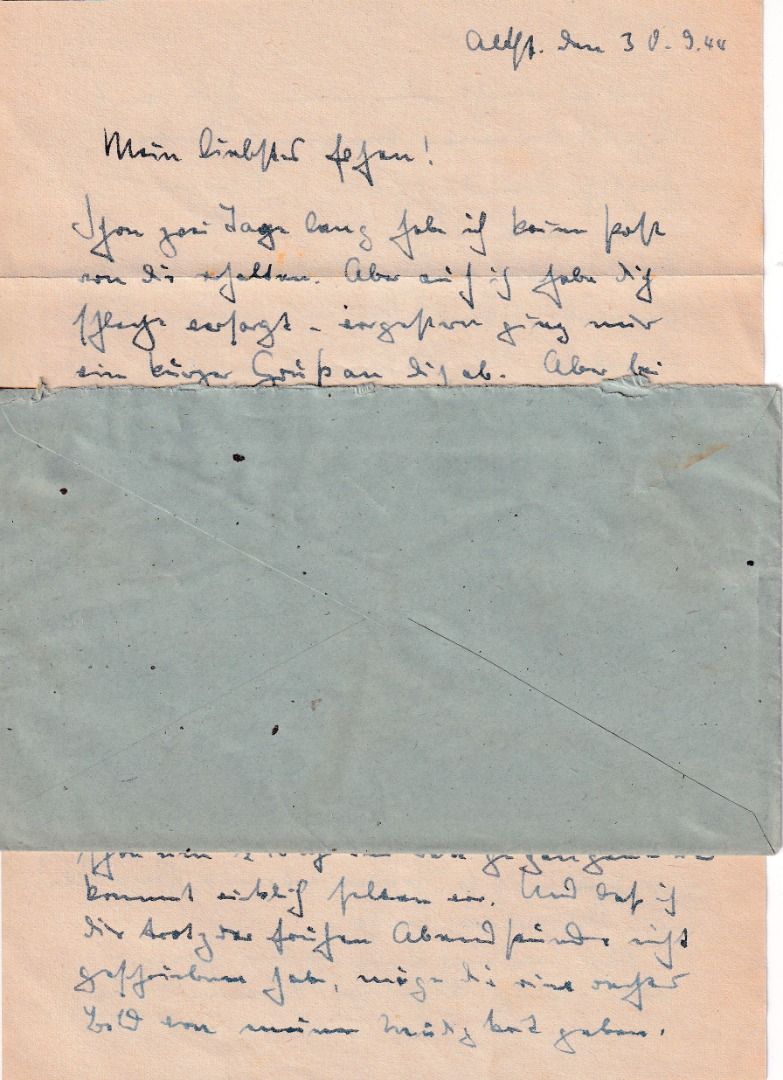 den 30.9.44
Mein liebster
Schon zwei Tage lang habe ich keine Post
von dir erhalten. Aber auch ich habe dich
schlecht versorgt - vorgestern ging nur
ein kurzer Gruß an dich ab. Aber bei
schon gegangen
kommt wirklich selten vor. Und daß ich
dir trotz der frühen Abendstunde nicht
geschrieben habe, möge dir rechtes
Bild von meiner Müdigkeit geben.